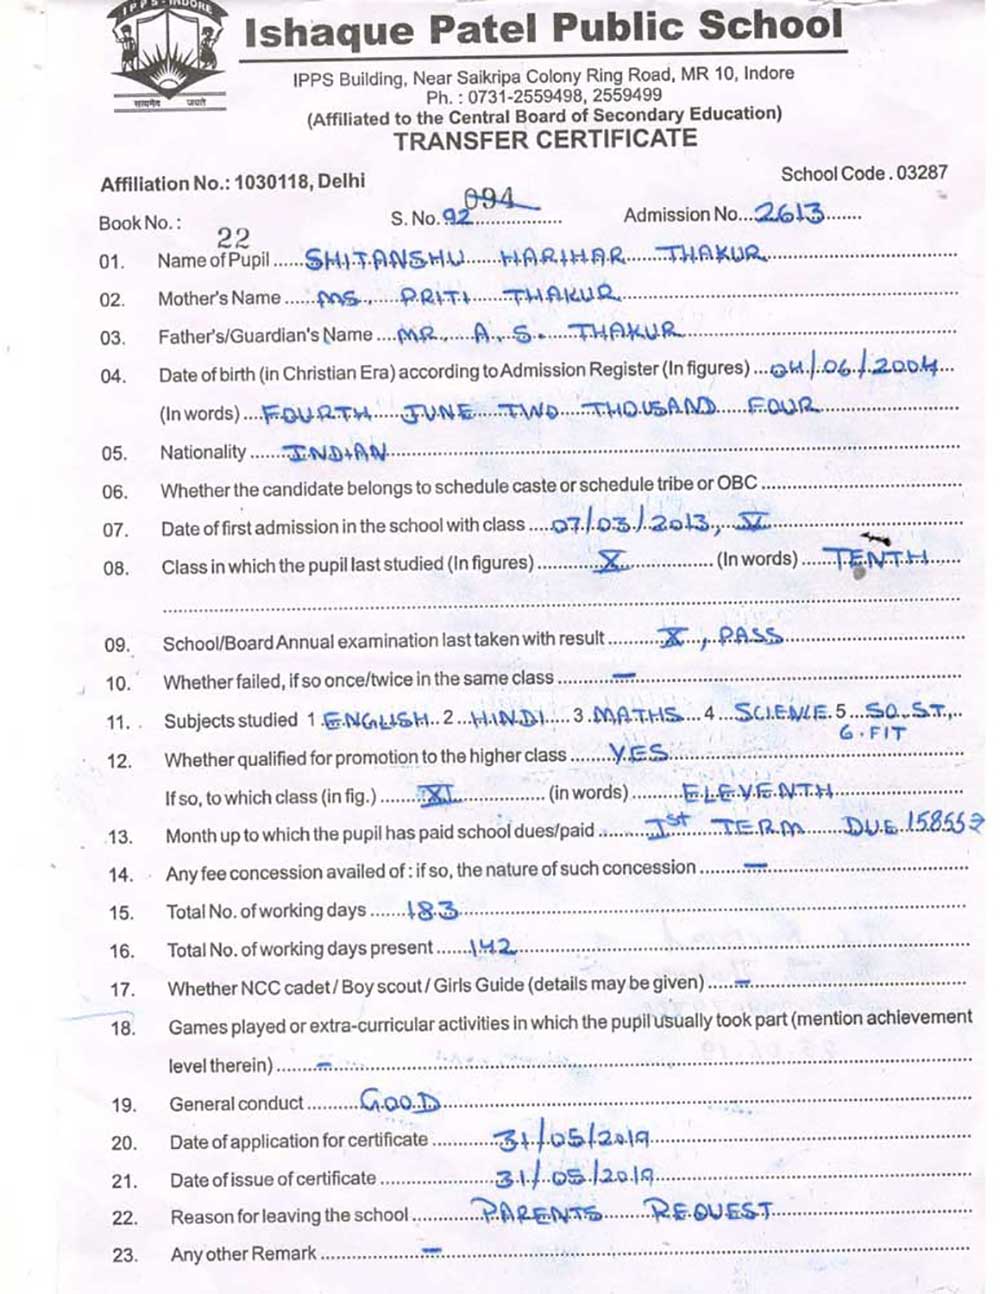 IPPS-INDORE
सत्यमेव जयते
Ishaque Patel Public School
IPPS Building, Near Saikripa Colony Ring Road, MR 10, Indore
Ph. : 0731-2559498, 2559499
(Affiliated to the Central Board of Secondary Education)
TRANSFER CERTIFICATE
Affiliation No.: 1030118, Delhi School Code . 03287
Book No. : 22 S. No. 92 094 Admission No... 2613
01. Name of Pupil ..... SHITANSHU HARIHAR THAKUR
02. Mother's Name ...... MS. PRITI THAKUR
03. Father's/Guardian's Name .... MR. A. S. THAKUR
04. Date of birth (in Christian Era) according to Admission Register (In figures) ... 04/06/2004
(In words) ... FOURTH JUNE TWO THOUSAND FOUR
05. Nationality ....... INDIAN
06. Whether the candidate belongs to schedule caste or schedule tribe or OBC
07. Date of first admission in the school with class .... 07/03/2013, V
08. Class in which the pupil last studied (In figures) X (In words) TENTH
09. School/Board Annual examination last taken with result X, PASS
10. Whether failed, if so once/twice in the same class —
11. Subjects studied 1 ENGLISH 2 HINDI 3 MATHS 4 SCIENCE 5 SO. ST.,
6. FIT
12. Whether qualified for promotion to the higher class YES
If so, to which class (in fig.) XI (in words) ELEVENTH
13. Month up to which the pupil has paid school dues/paid Ist TERM DUE
14. Any fee concession availed of : if so, the nature of such concession —
15. Total No. of working days 183
16. Total No. of working days present 142
17. Whether NCC cadet / Boy scout / Girls Guide (details may be given) —
18. Games played or extra-curricular activities in which the pupil usually took part (mention achievement
level therein) —
19. General conduct GOOD
20. Date of application for certificate 31/05/2019
21. Date of issue of certificate 31/05/2019
22. Reason for leaving the school PARENTS REQUEST
23. Any other Remark —